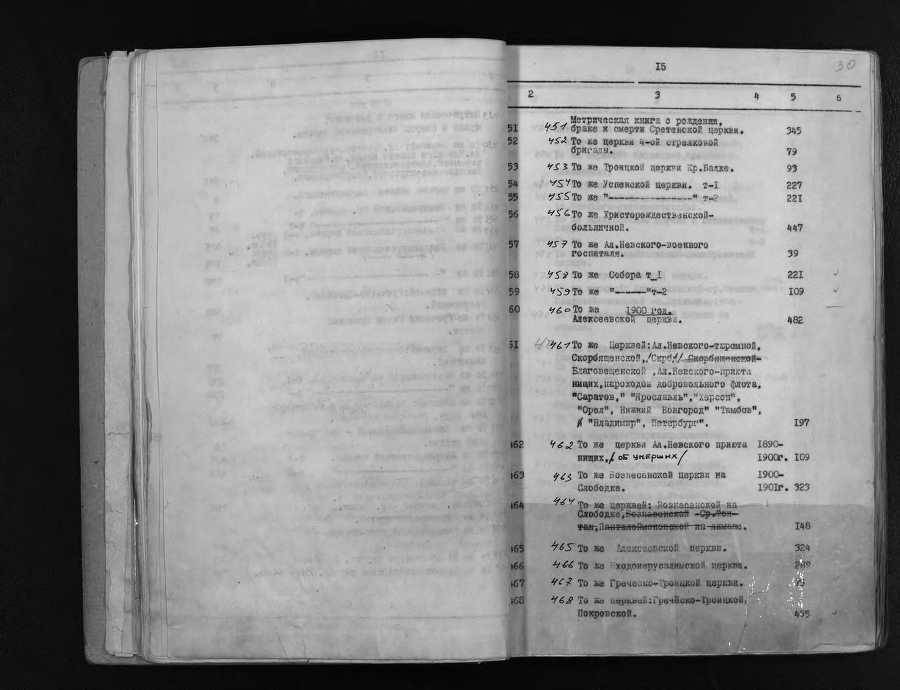 15
30
2 3 4 5 6
Метрическая книга о рождении,
51 451 браке и смерти Сретенской церкви. 345
52 452 То же церкви 4-ой стрелковой
бригады. 79
53 453 То же Троицкой церкви Кр.Балке. 93
54 454 То же Успенской церкви. т-1 227
55 455 То же "---------------" т-2 221
56 456 То же Христорождественской-
больничной. 447
57 457 То же Ал.Невского-военного
госпиталя. 39
58 458 То же Собора т_I 221
59 459 То же "------"т-2 109
60 460 То же 1900 год.
Алексеевской церкви. 482
61 461 То же Церквей:Ал.Невского-тюремной,
Скорбященской,/Скрб// Скорбященской-
Благовещенской ,Ал.Невского-приюта
нищих,пароходов добровольного флота,
"Саратов," "Ярославль","Херсон",
"Орел", Нижний Новгород" "Тамбов",
"Владимир", Петербург". 197
462 462 То же церкви Ал.Невского приюта 1890-
нищих./об умерших/ 1900г. 109
463 463 То же Вознесенской церкви на 1900-
Слободке. 1901г. 323
464 464 То же церквей: Вознесенской на
Слободке,Вознесенской -Ср.Фон-
тан,Пантелеймоновской на лимане. 148
465 465 То же Алексеевской церкви. 324
466 466 То же Входоиерусалимской церкви.
467 467 То же Греческо-Троицкой церкви.
468 468 То же церквей:Греческо-Троицкой,
Покровской. 455